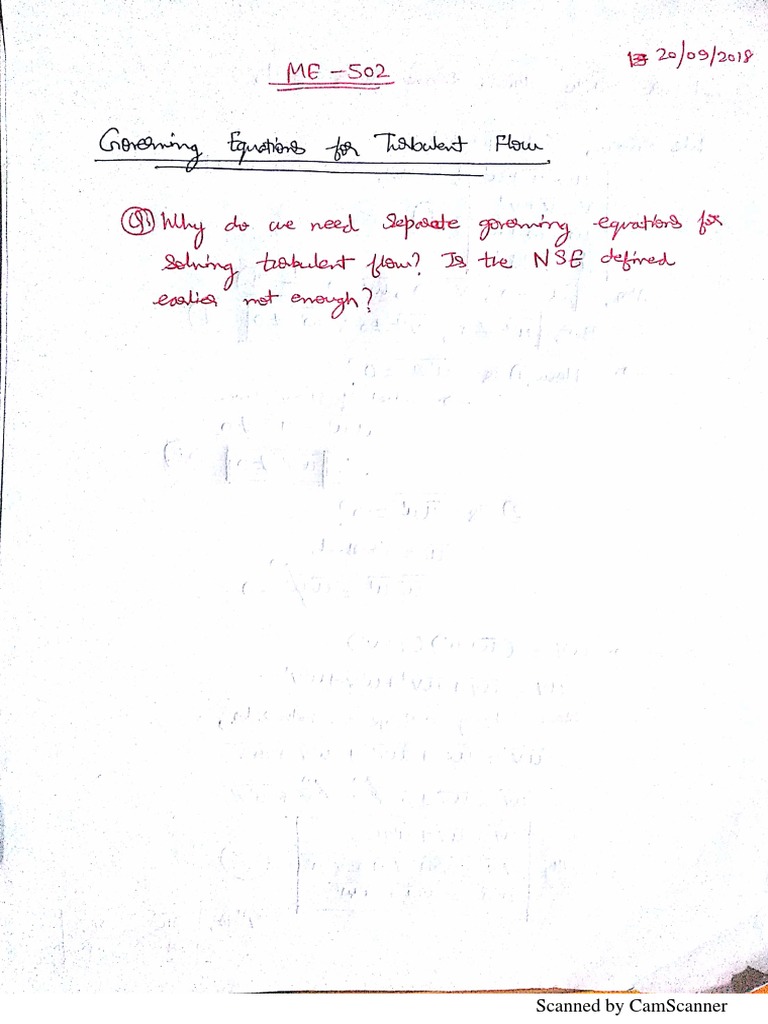 20/09/2018
ME - 502
Governing Equations for Turbulent Flow
Q1) Why do we need separate governing equations for
solving turbulent flow? Is the NSE defined
earlier not enough?
Scanned by CamScanner